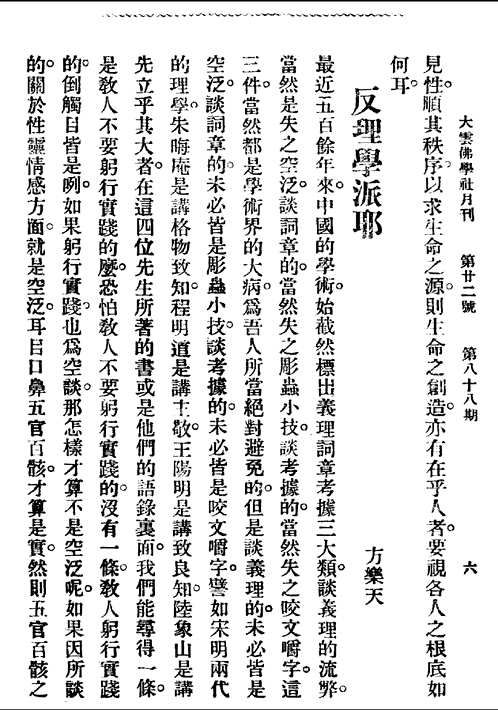 大雲佛學社月刊　第廿二號　第八十八期　六
見性。順其秩序。以求生命之源。則生命之創造。亦有在乎人者。要視各人之根底如
何耳。
反理學派耶
方樂天
最近五百餘年來。中國的學術。始截然標出義理詞章考據三大類。談義理的流弊。
當然是失之空泛。談詞章的。當然失之彫蟲小技。談考據的。當然失之咬文嚼字。這
三件當然都是學術界的大病。爲吾人所當絕對避免的。但是談義理的。未必皆是
空泛。談詞章的。未必皆是彫蟲小技。談考據的。未必皆是咬文嚼字。譬如宋明兩代
的理學。朱晦庵是講格物致知。程明道是講主敬。王陽明是講致良知。陸象山是講
先立乎其大者。在這四位先生所著的書或是他們的語錄裏面。我們能尋得一條。
是教人不要躬行實踐的麼。恐怕教人不要躬行實踐的。沒有一條。教人躬行實踐
的。倒觸目皆是咧。如果躬行實踐。也爲空談。那怎樣才算不是空泛呢。如果因所談
的。關於性靈情感方面。就是空泛。耳目口鼻五官百骸。才算是實。然則五官百骸之